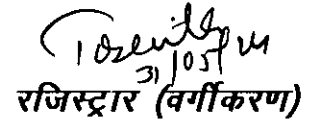 31/05/24
रजिस्ट्रार (वर्गीकरण)